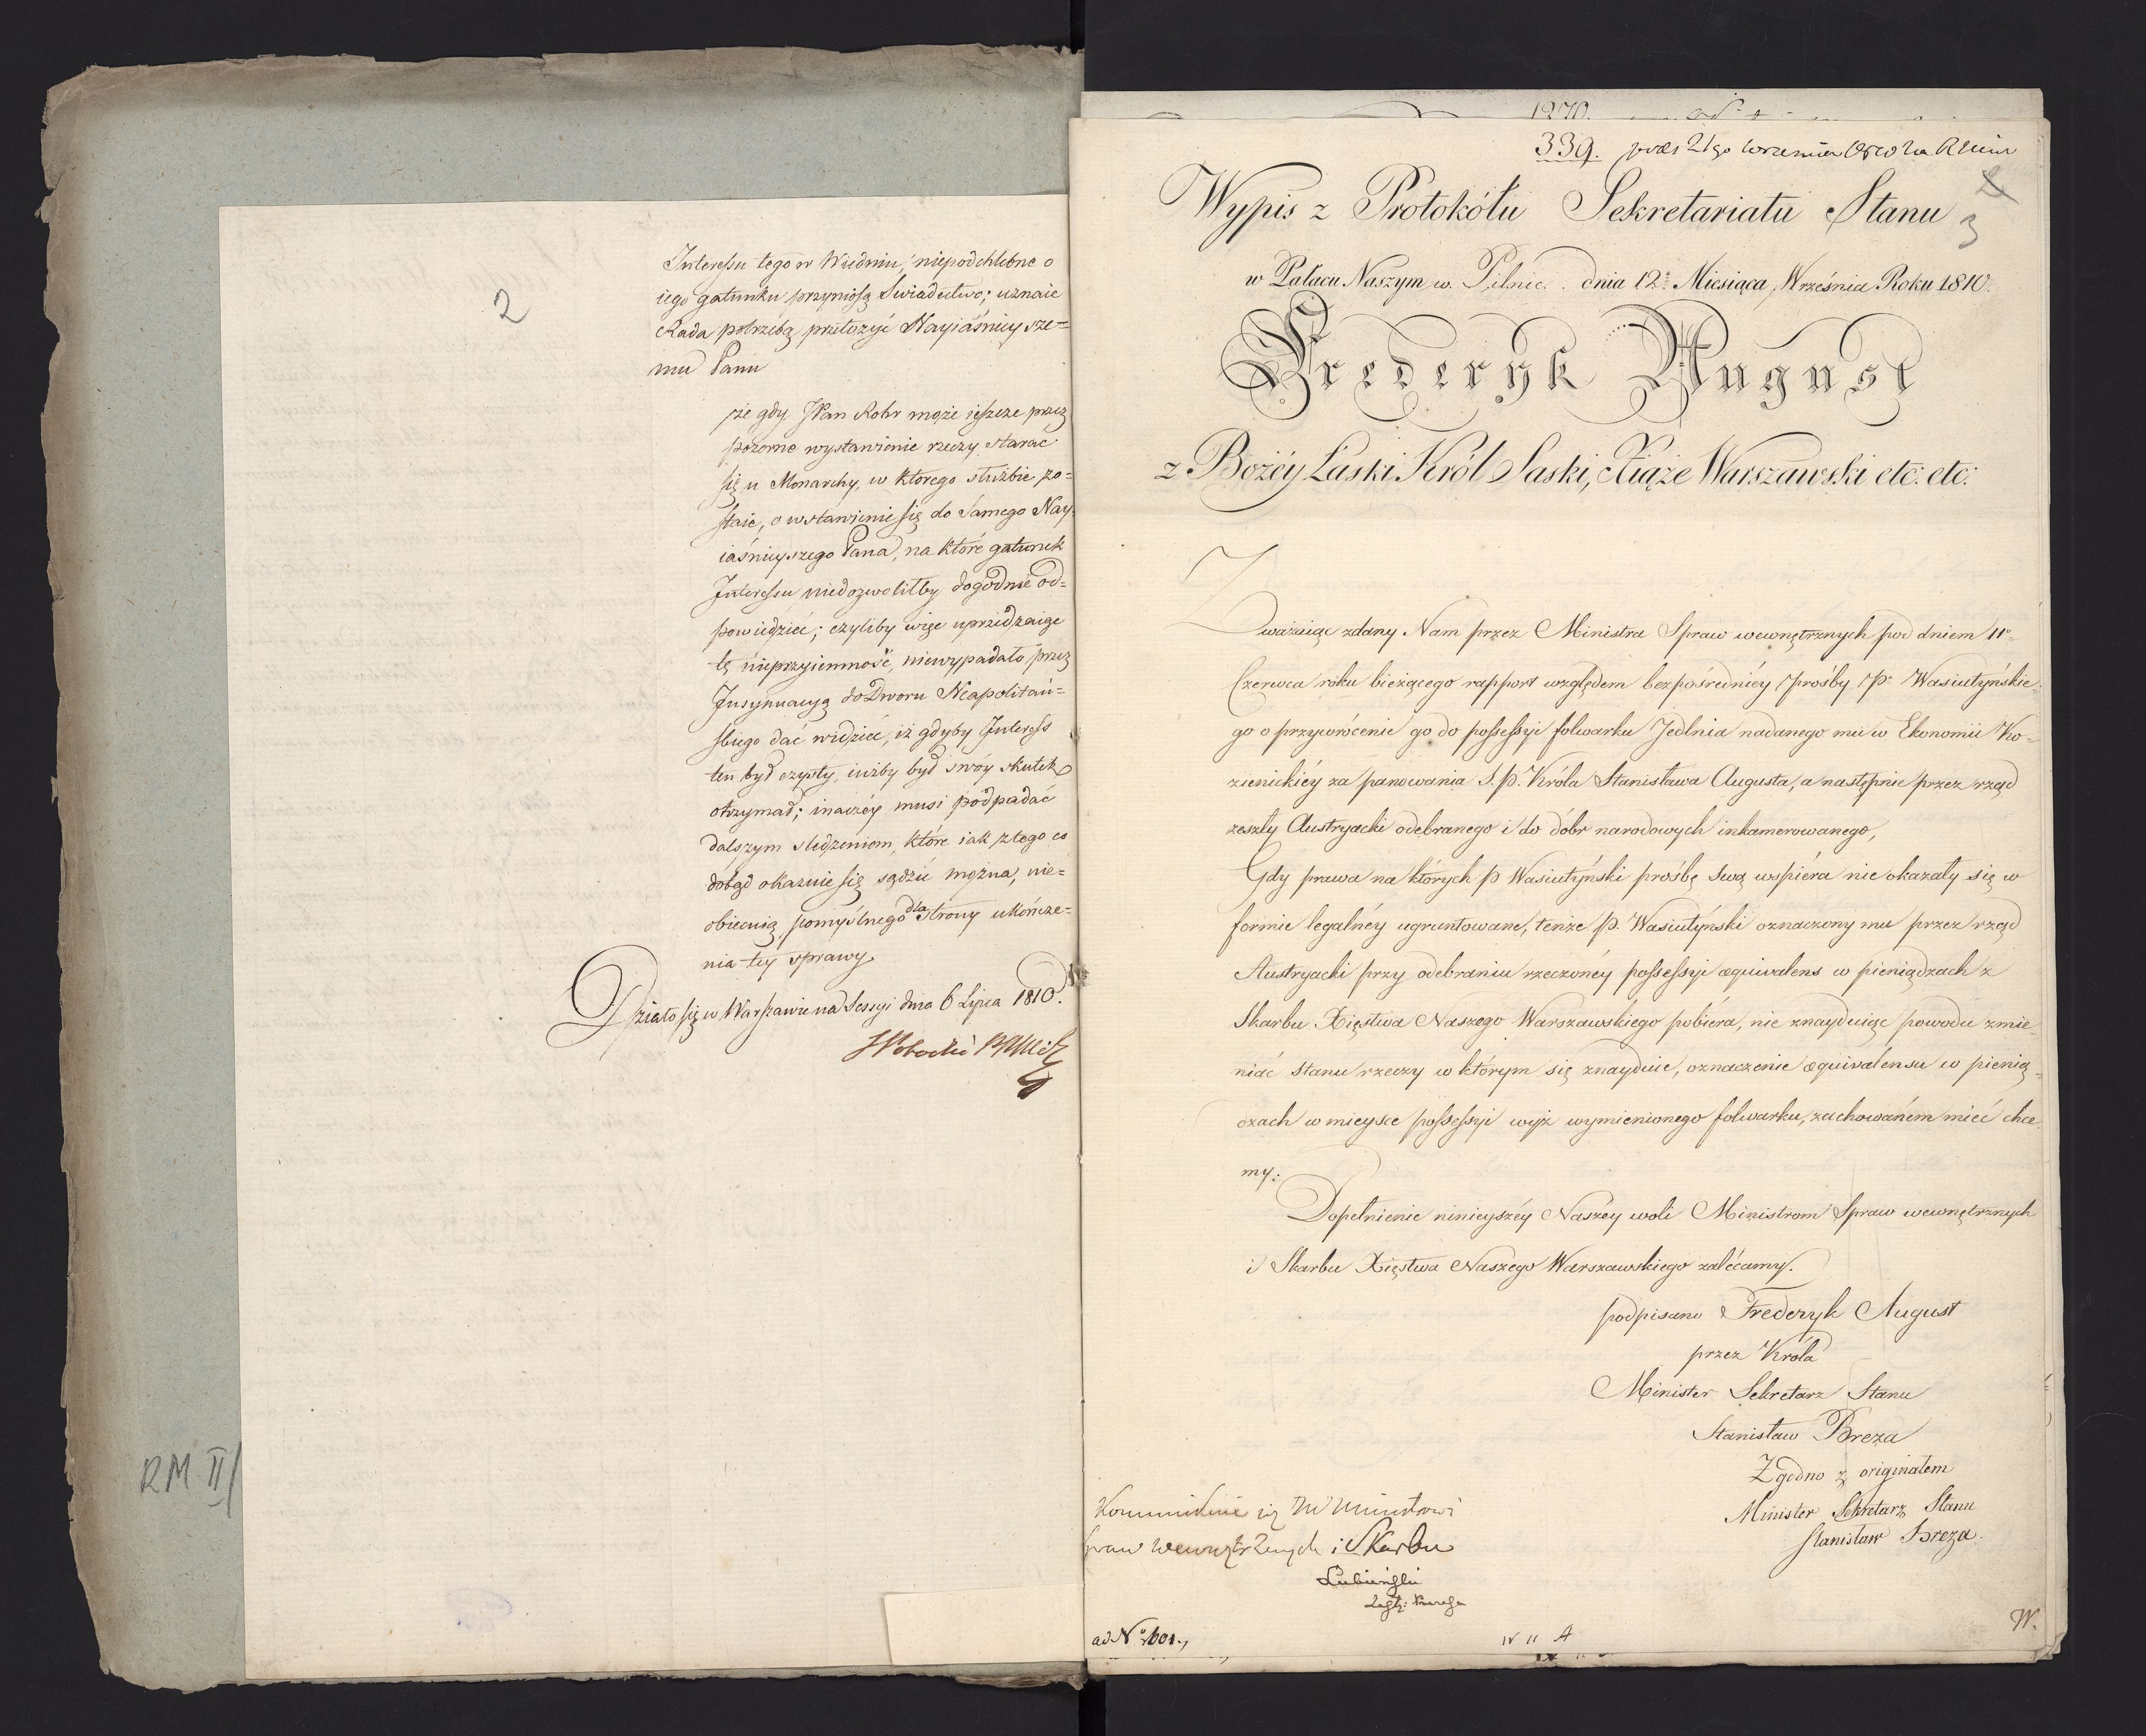 2
Interessu tego w Wiedniu, niepodchlebne o
iego gatunku przyniosą Świadectwo; uznaie
Rada potrzebą przełożyć Nayiaśnieysze=
mu Panu
że gdy JPan Rohr może ieszcze przez
pozorne wystawienie rzeczy starać
się u Monarchy, w którego służbie zo=
staie, o wstawienie się do Samego Nay=
iaśnieyszego Pana, na które gatunek
Interessu niedozwoliłby dogodnie od=
powiedzieć; czyliby więc uprzedzaiąc
tę nieprzyiemność, niewypadało przez
Insynuacyą do Dworu Neapolitań=
skiego dać widzieć, iż gdyby Interess
ten był czysty, iużby był swóy skutek
otrzymał; inaczéy musi podpadać
dalszym śledzeniom, które iak z tego co
dotąd okazuie się sądzić można, nie=
obiecuią pomyślnego dla Strony ukończe=
nia tey sprawy.
Działo się w Warszawie na Sessyi dnia 6 Lipca 1810.
RM II/
1270.
339. 21go
Wypis z Protokółu Sekretariatu Stanu
2
3
w Pałacu Naszym w. Pilnic. dnia 12. Miesiąca Września Roku 1810.
Fryderyk August
z Bożéy Łaski Król Saski, Xiąże Warszawski etc: etc:
Zważaiąc zdany Nam przez Ministra Spraw wewnętrznych pod dniem 11o
Czerwca roku bieżącego rapport względem bezpośredniéy prośby P. Wasiutyńskie=
go o przywrócenie go do possessyi folwarku Jedlnia nadanego mu w Ekonomii Ko=
zienickiéy za panowania Ś. p. Króla Stanisława Augusta, a następnie przez rząd
zeszły Austryacki odebranego i do dóbr narodowych inkamerowanego,
Gdy prawa na których P. Wasiutyński prośbę swą wspiéra nie okazały się w
formie legalnéy ugruntowane, tenże P. Wasiutyński oznaczony mu przez rząd
Austryacki przy odebraniu rzeczonéy possessyi æquivalens w pieniądzach z
Skarbu Xięstwa Naszego Warszawskiego pobiéra, nie znayduiąc powodu zmie=
niać stanu rzeczy w którym się znayduie, oznaczenie æquivalensu w pienią=
dzach w mieysce possessyi wyż wymienionego folwarku, zachowaném mieć chce=
my:
Dopełnienie ninieyszéy Naszéy woli Ministrom Spraw wewnętrznych
i Skarbu Xięstwa Naszego Warszawskiego zalécamy.
podpisano Frederyk August
przez Króla
Minister Sekretarz Stanu
Stanisław Breza
Zgodno z originałem
Minister Sekretarz Stanu
Stanisław Breza.
Kommunikuie się Ministrowi
Spraw Wewnętrznych i Skarbu
Lubieński
ad No 601.,
W.